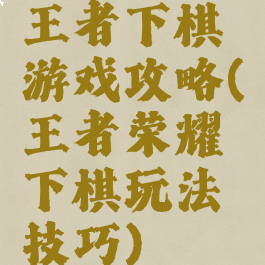 王者下棋
游戏攻略(
王者荣耀
下棋玩法
技巧)